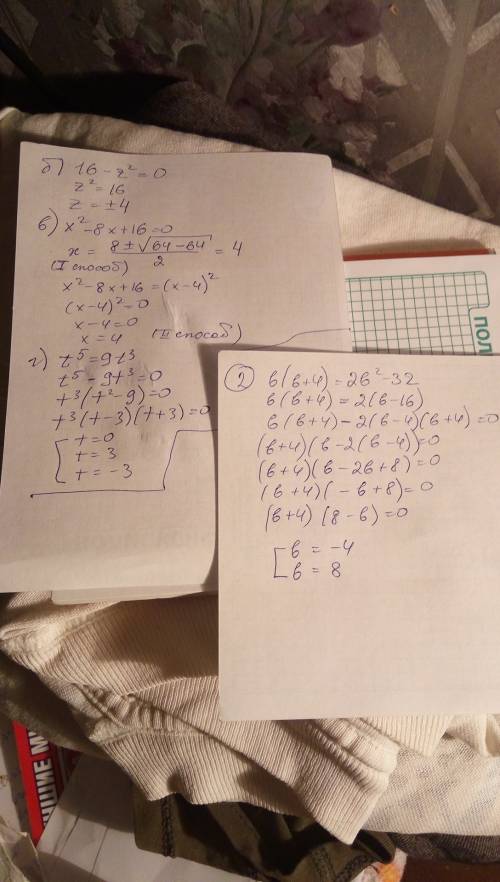 б) 16 - z² = 0
z² = 16
z = ±4
в) x² - 8x + 16 = 0
x = (8 ± √(64 - 64)) / 2 = 4
(I способ)
x² - 8x + 16 = (x - 4)²
(x - 4)² = 0
x - 4 = 0
x = 4 (II способ)
г) t⁵ = 9t³
t⁵ - 9t³ = 0
t³(t² - 9) = 0
t³(t - 3)(t + 3) = 0
t = 0
t = 3
t = -3
② b(b+4) = 2b² - 32
b(b+4) = 2(b - 16)
b(b+4) - 2(b-4)(b+4) = 0
(b+4)(b - 2(b-4)) = 0
(b+4)(b - 2b + 8) = 0
(b+4)(-b + 8) = 0
(b+4)(8 - b) = 0
b = -4
b = 8
ПОЛ
ШИЕ М